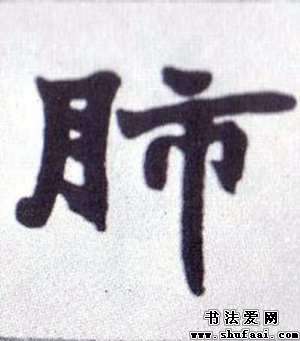 肺
书法爱网
www.shufaai.com